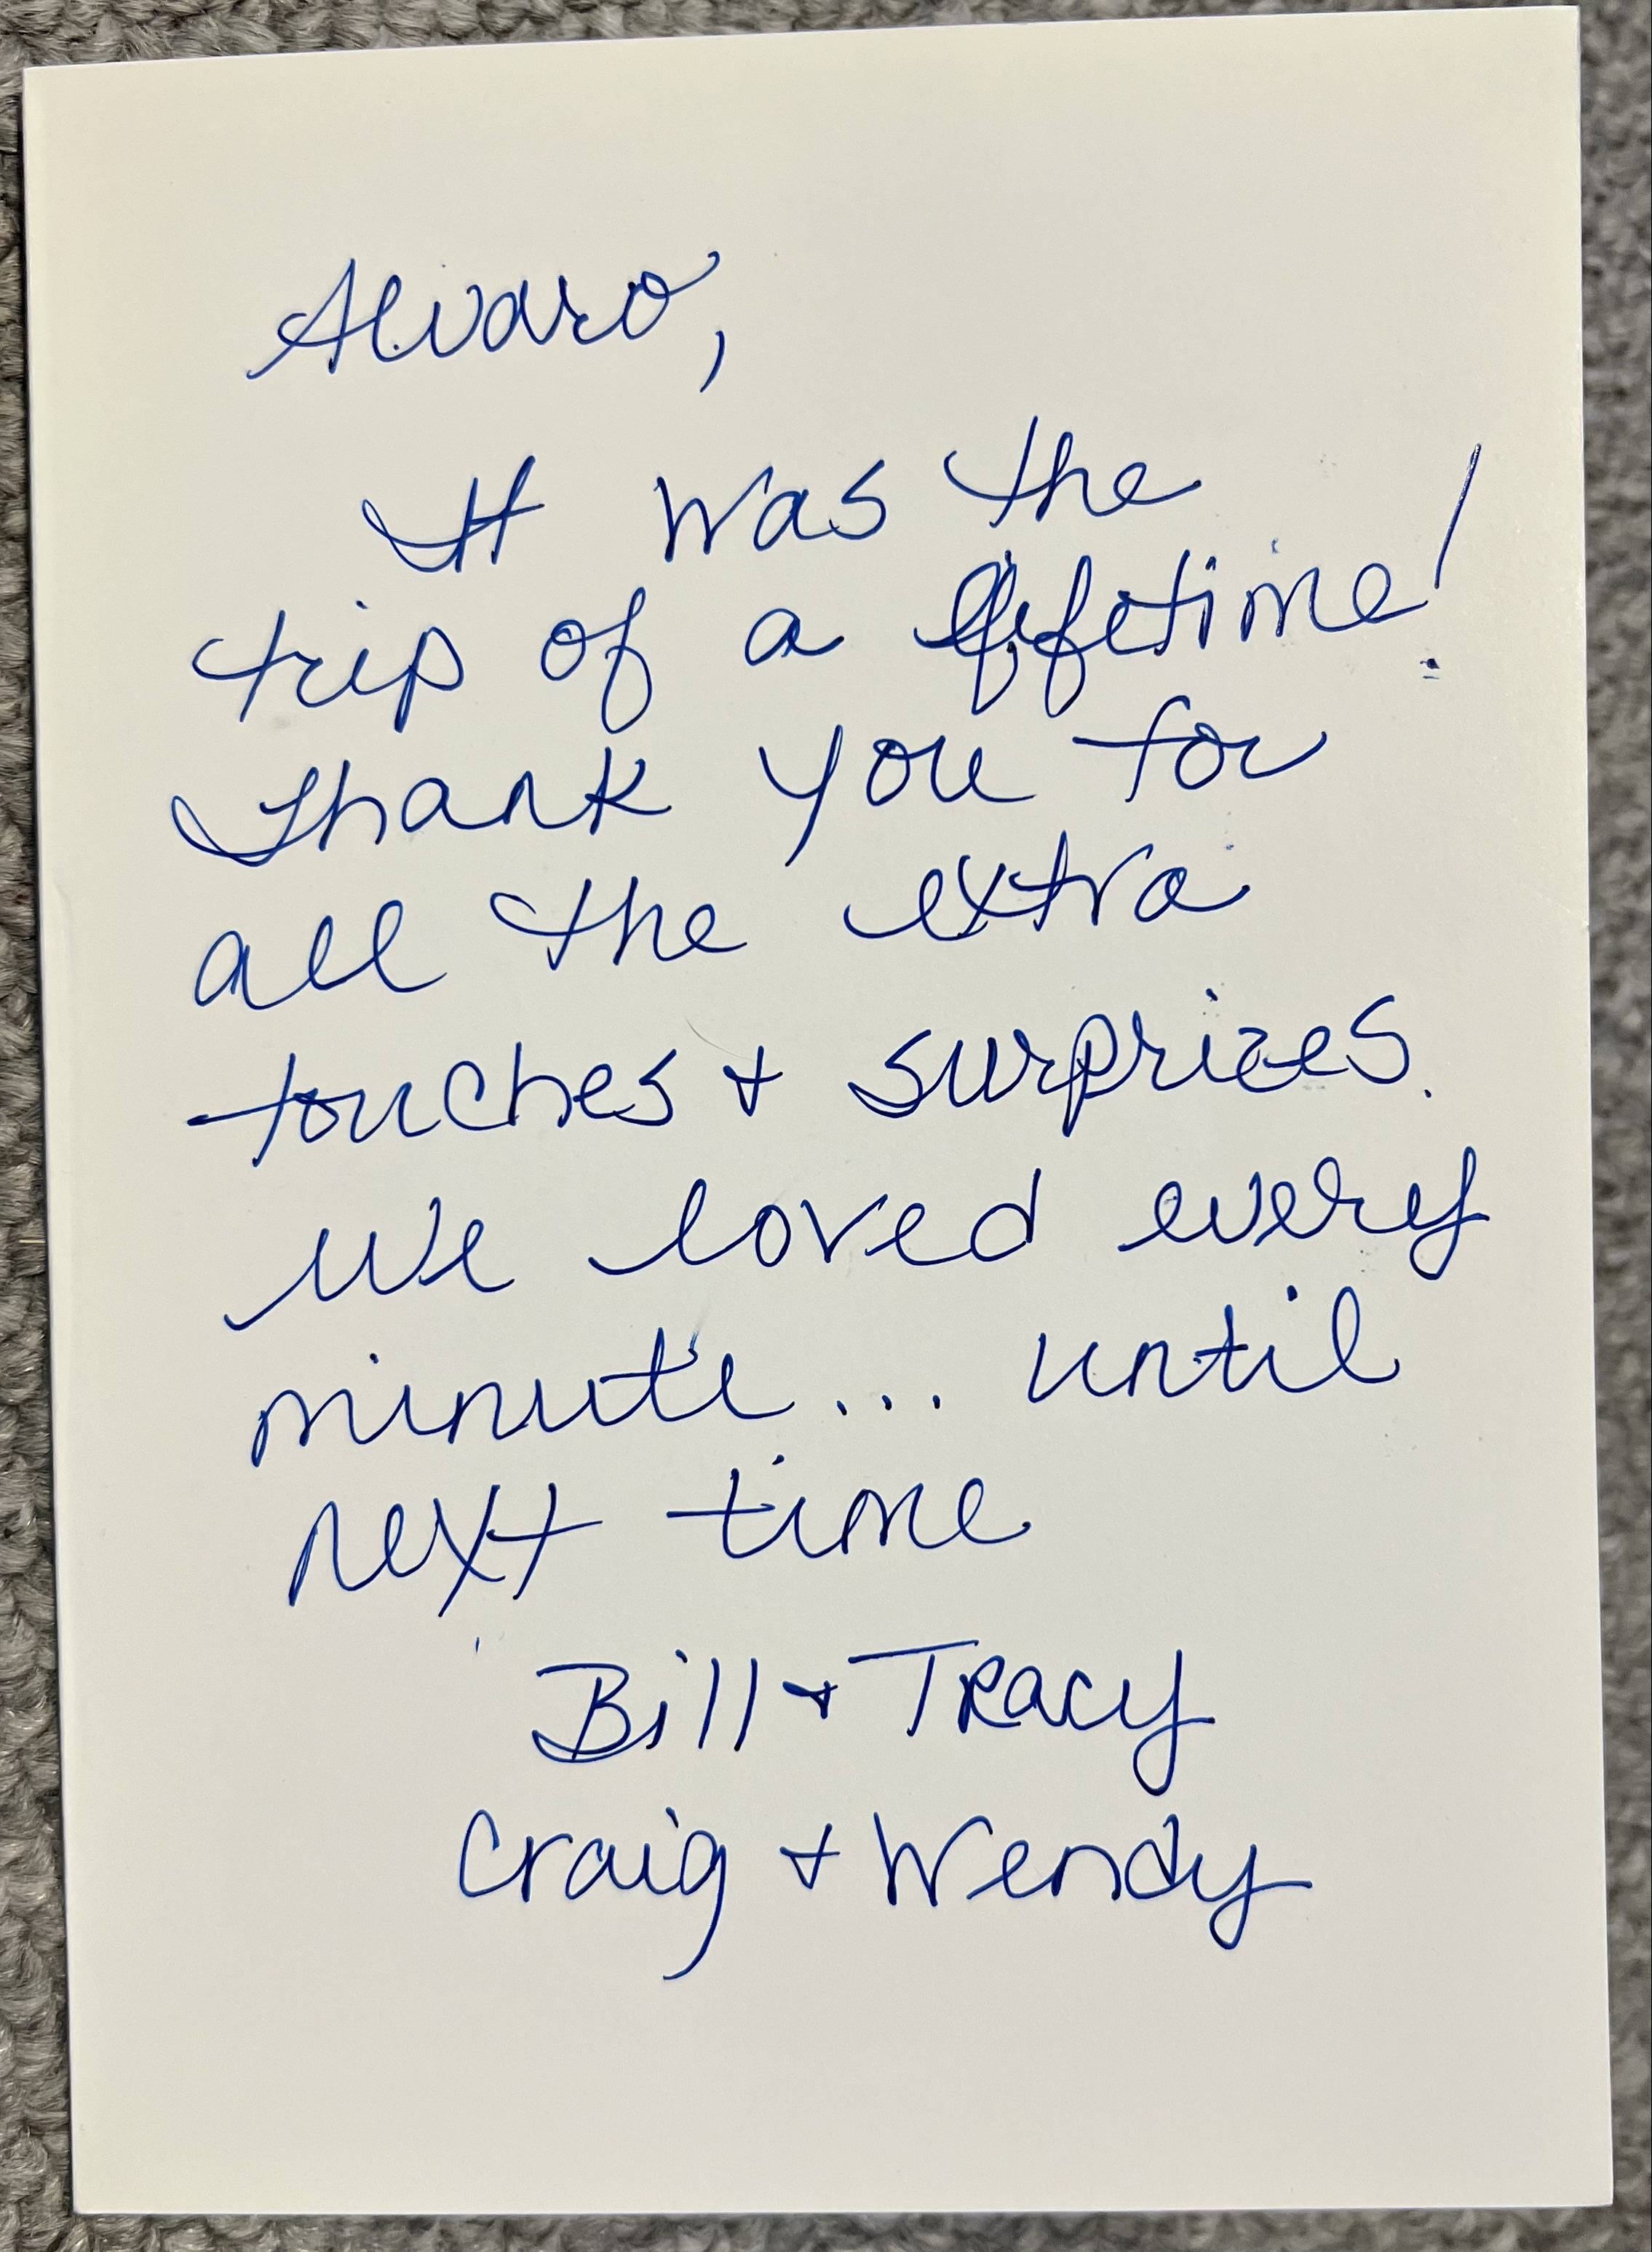 Alvaro,
It was the
trip of a lifetime!
Thank you for
all the extra
touches + surprizes.
We loved every
minute... until
next time
Bill + Tracy
Craig + Wendy